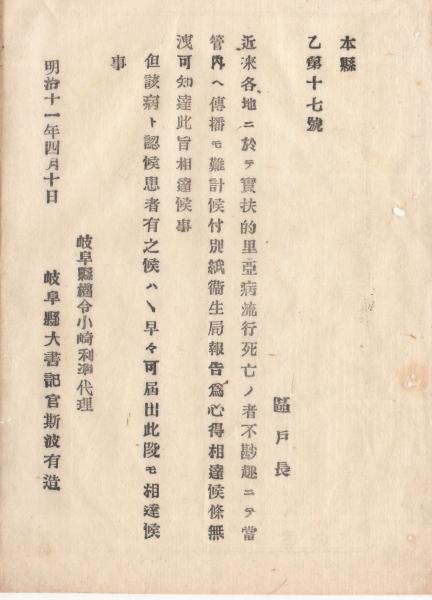 本縣
乙第十七號
區戸長
近來各地ニ於テ實扶的里亞病流行死亡ノ者不尠趣ニテ當
管內ヘ傳播モ難計候付別紙衞生局報告爲心得相達候條無
洩可知達此旨相達候事
但該病ト認候患者有之候ハヽ早々可屆出此段モ相達候
事
岐阜縣權令小崎利準代理
明治十一年四月十日
岐阜縣大書記官斯波有造